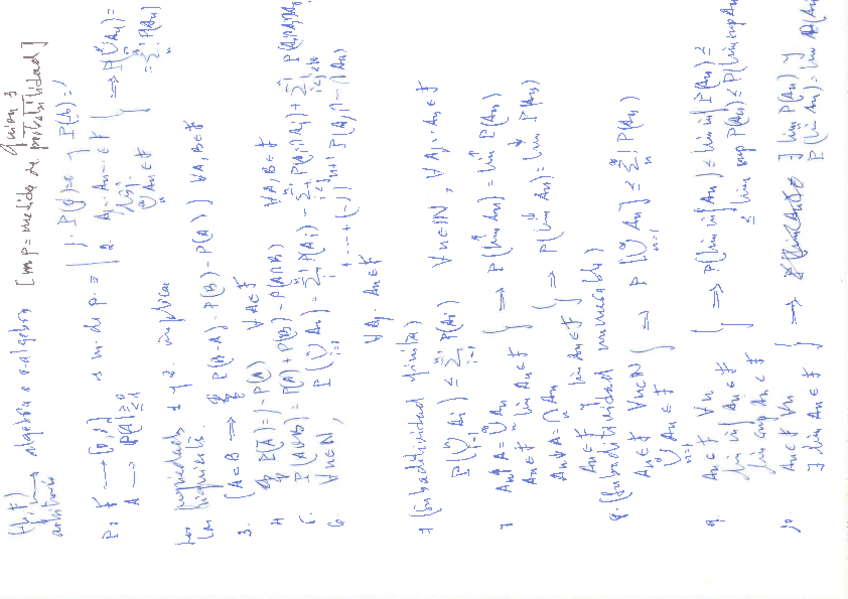 (Ω, F) → algebra o σ-algebra [m p = medida de probabilidad]
arbitraria
P: F → [0,1] es m. de p. ≡ { 1. P(∅)=0 y P(Ω)=1
A → 0≤P(A)≤1
2. A₁, ··· Aₙ ··· ∈ F
disj.
⋃ₙ Aₙ ∈ F } ⟹ P(⋃ₙ Aₙ) = = Σₙ P(Aₙ)
Las propiedades 1 y 2. implican
las siguientes.
3. { A⊂B ⟹ P(B-A) = P(B) - P(A) } ∀A,B∈F
4. P(Ā) = 1 - P(A) ∀A∈F
5. P(A∪B) = P(A) + P(B) - P(A∩B) ∀A,B∈F
6. ∀n∈ℕ, P(⋃ᵢ₌₁ⁿ Aᵢ) = Σ P(Aᵢ) - Σ P(Aᵢ∩Aⱼ) + Σ P(Aᵢ∩Aⱼ∩Aₖ)
+ ··· + (-1)ⁿ⁺¹ P(A₁∩ ··· ∩Aₙ)
∀A₁ ·· Aₙ∈F
7 (Subaditividad finita)
P(⋃ᵢ₌₁ⁿ Aᵢ) ≤ Σᵢ₌₁ⁿ P(Aᵢ) ∀n∈ℕ, ∀A₁ ·· Aₙ∈F
7 Aₙ↑ A = ⋃ Aₙ
Aₙ∈F lim Aₙ∈F } ⟹ P(lim Aₙ) = lim P(Aₙ)
Aₙ↓ A = ⋂ₙ Aₙ
Aₙ∈F y lim Aₙ∈F } ⟹ P(lim Aₙ) = lim P(Aₙ)
8. (Subaditividad numerable)
Aₙ∈F ∀n∈ℕ
⋃ₙ₌₁ Aₙ∈F } ⟹ P(⋃ₙ₌₁ Aₙ) ≤ Σₙ P(Aₙ)
9. Aₙ∈F ∀n
lim inf Aₙ∈F
lim sup Aₙ∈F } ⟹ P(lim inf Aₙ) ≤ lim inf P(Aₙ) ≤
≤ lim sup P(Aₙ) ≤ P(lim sup Aₙ)
10 Aₙ∈F ∀n
∃ lim Aₙ∈F } ⟹ ∃ lim P(Aₙ) y
P(lim Aₙ) = lim P(Aₙ)